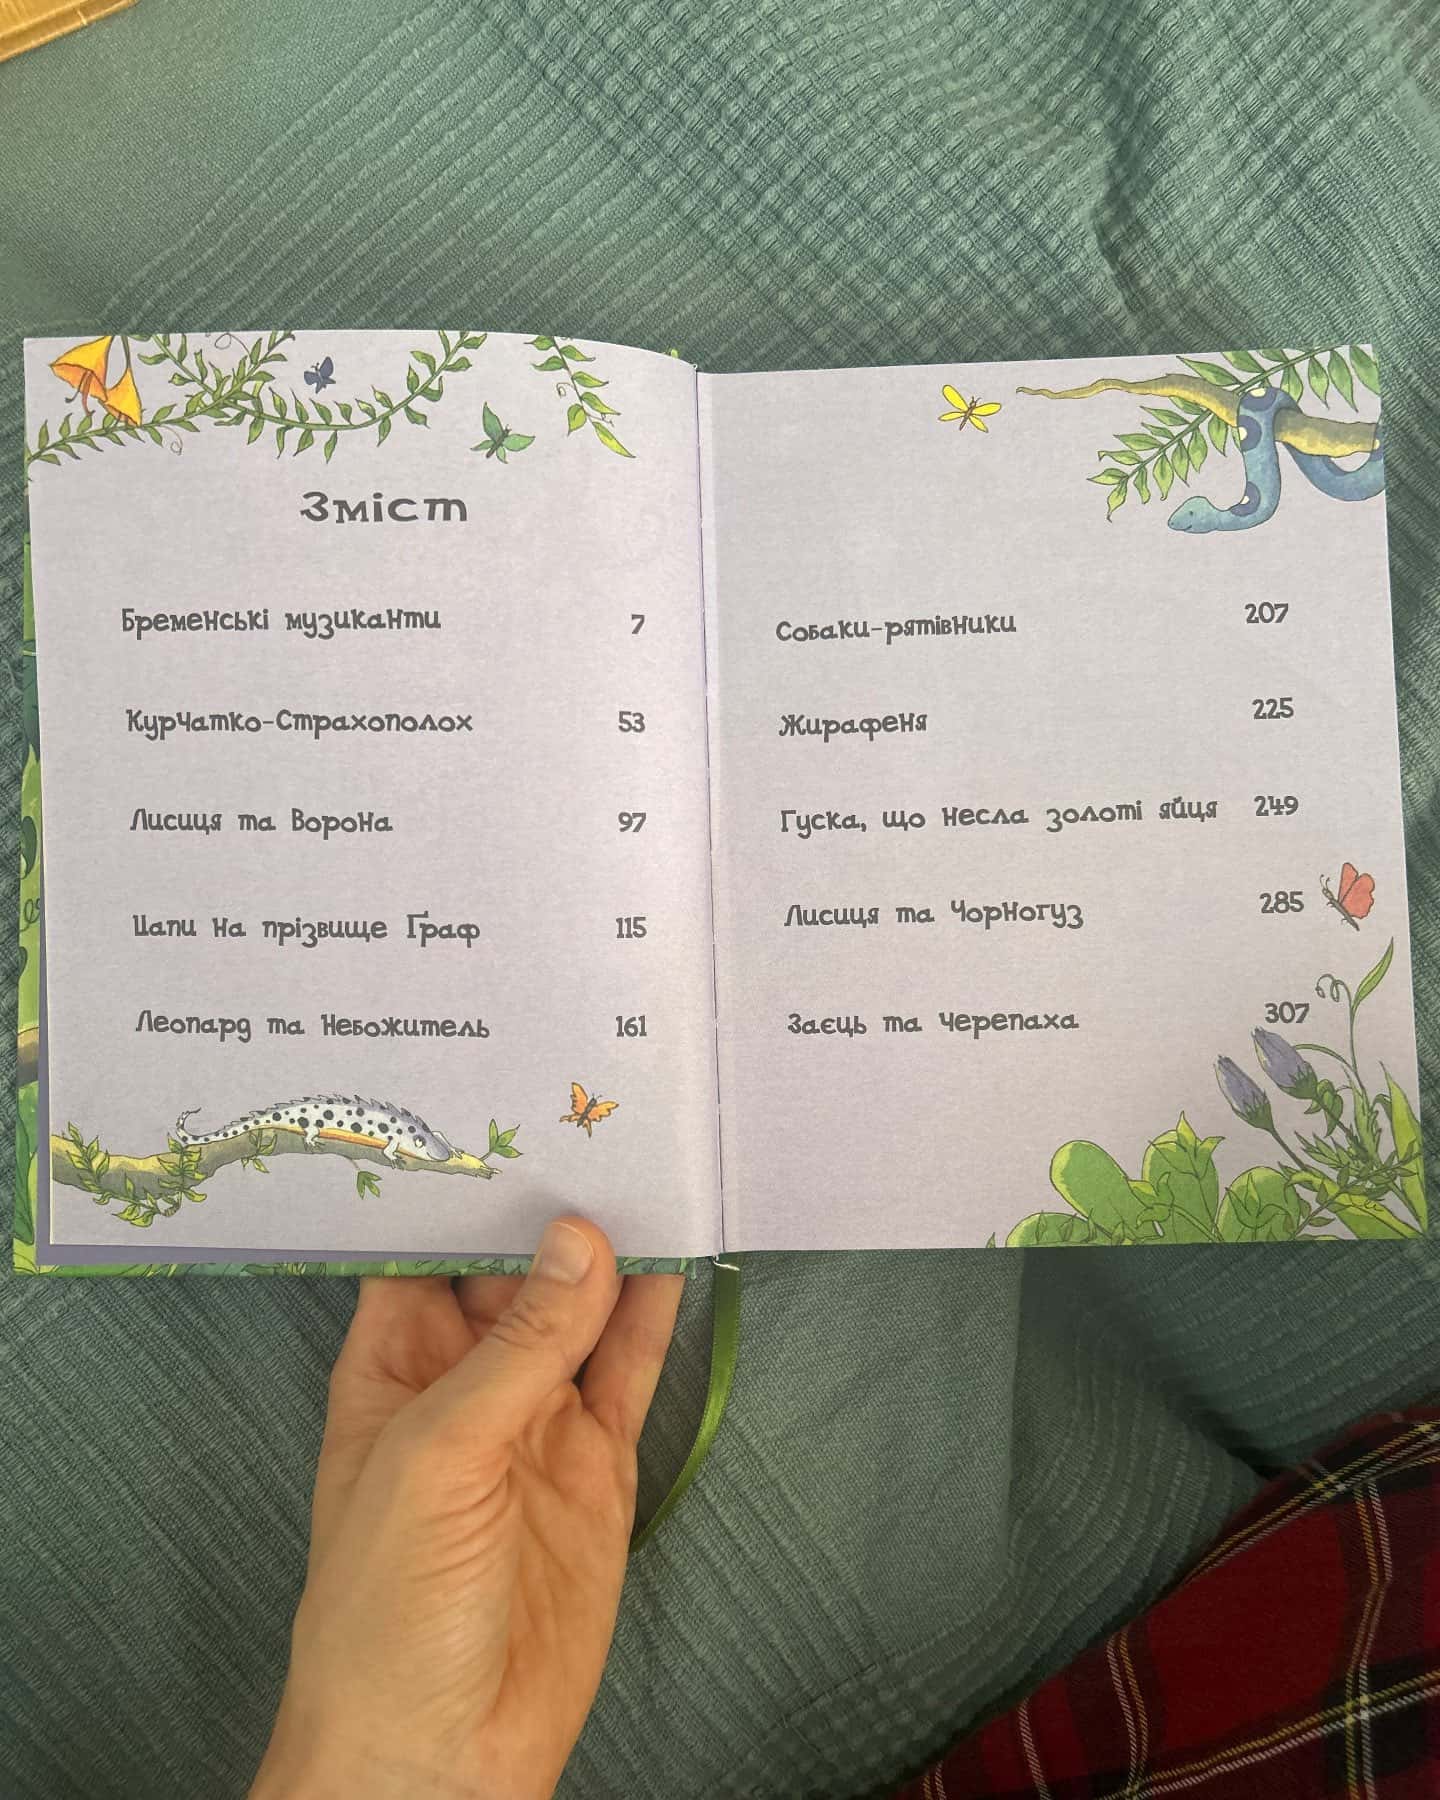 Зміст
Бременські музиканти 7
Курчатко-Страхополох 53
Лисиця та Ворона 97
Цапи на прізвище Ґраф 115
Леопард та Небожитель 161
Собаки-рятівники 207
Жирафеня 225
Гуска, що несла золоті яйця 249
Лисиця та Чорногуз 285
Заєць та Черепаха 307